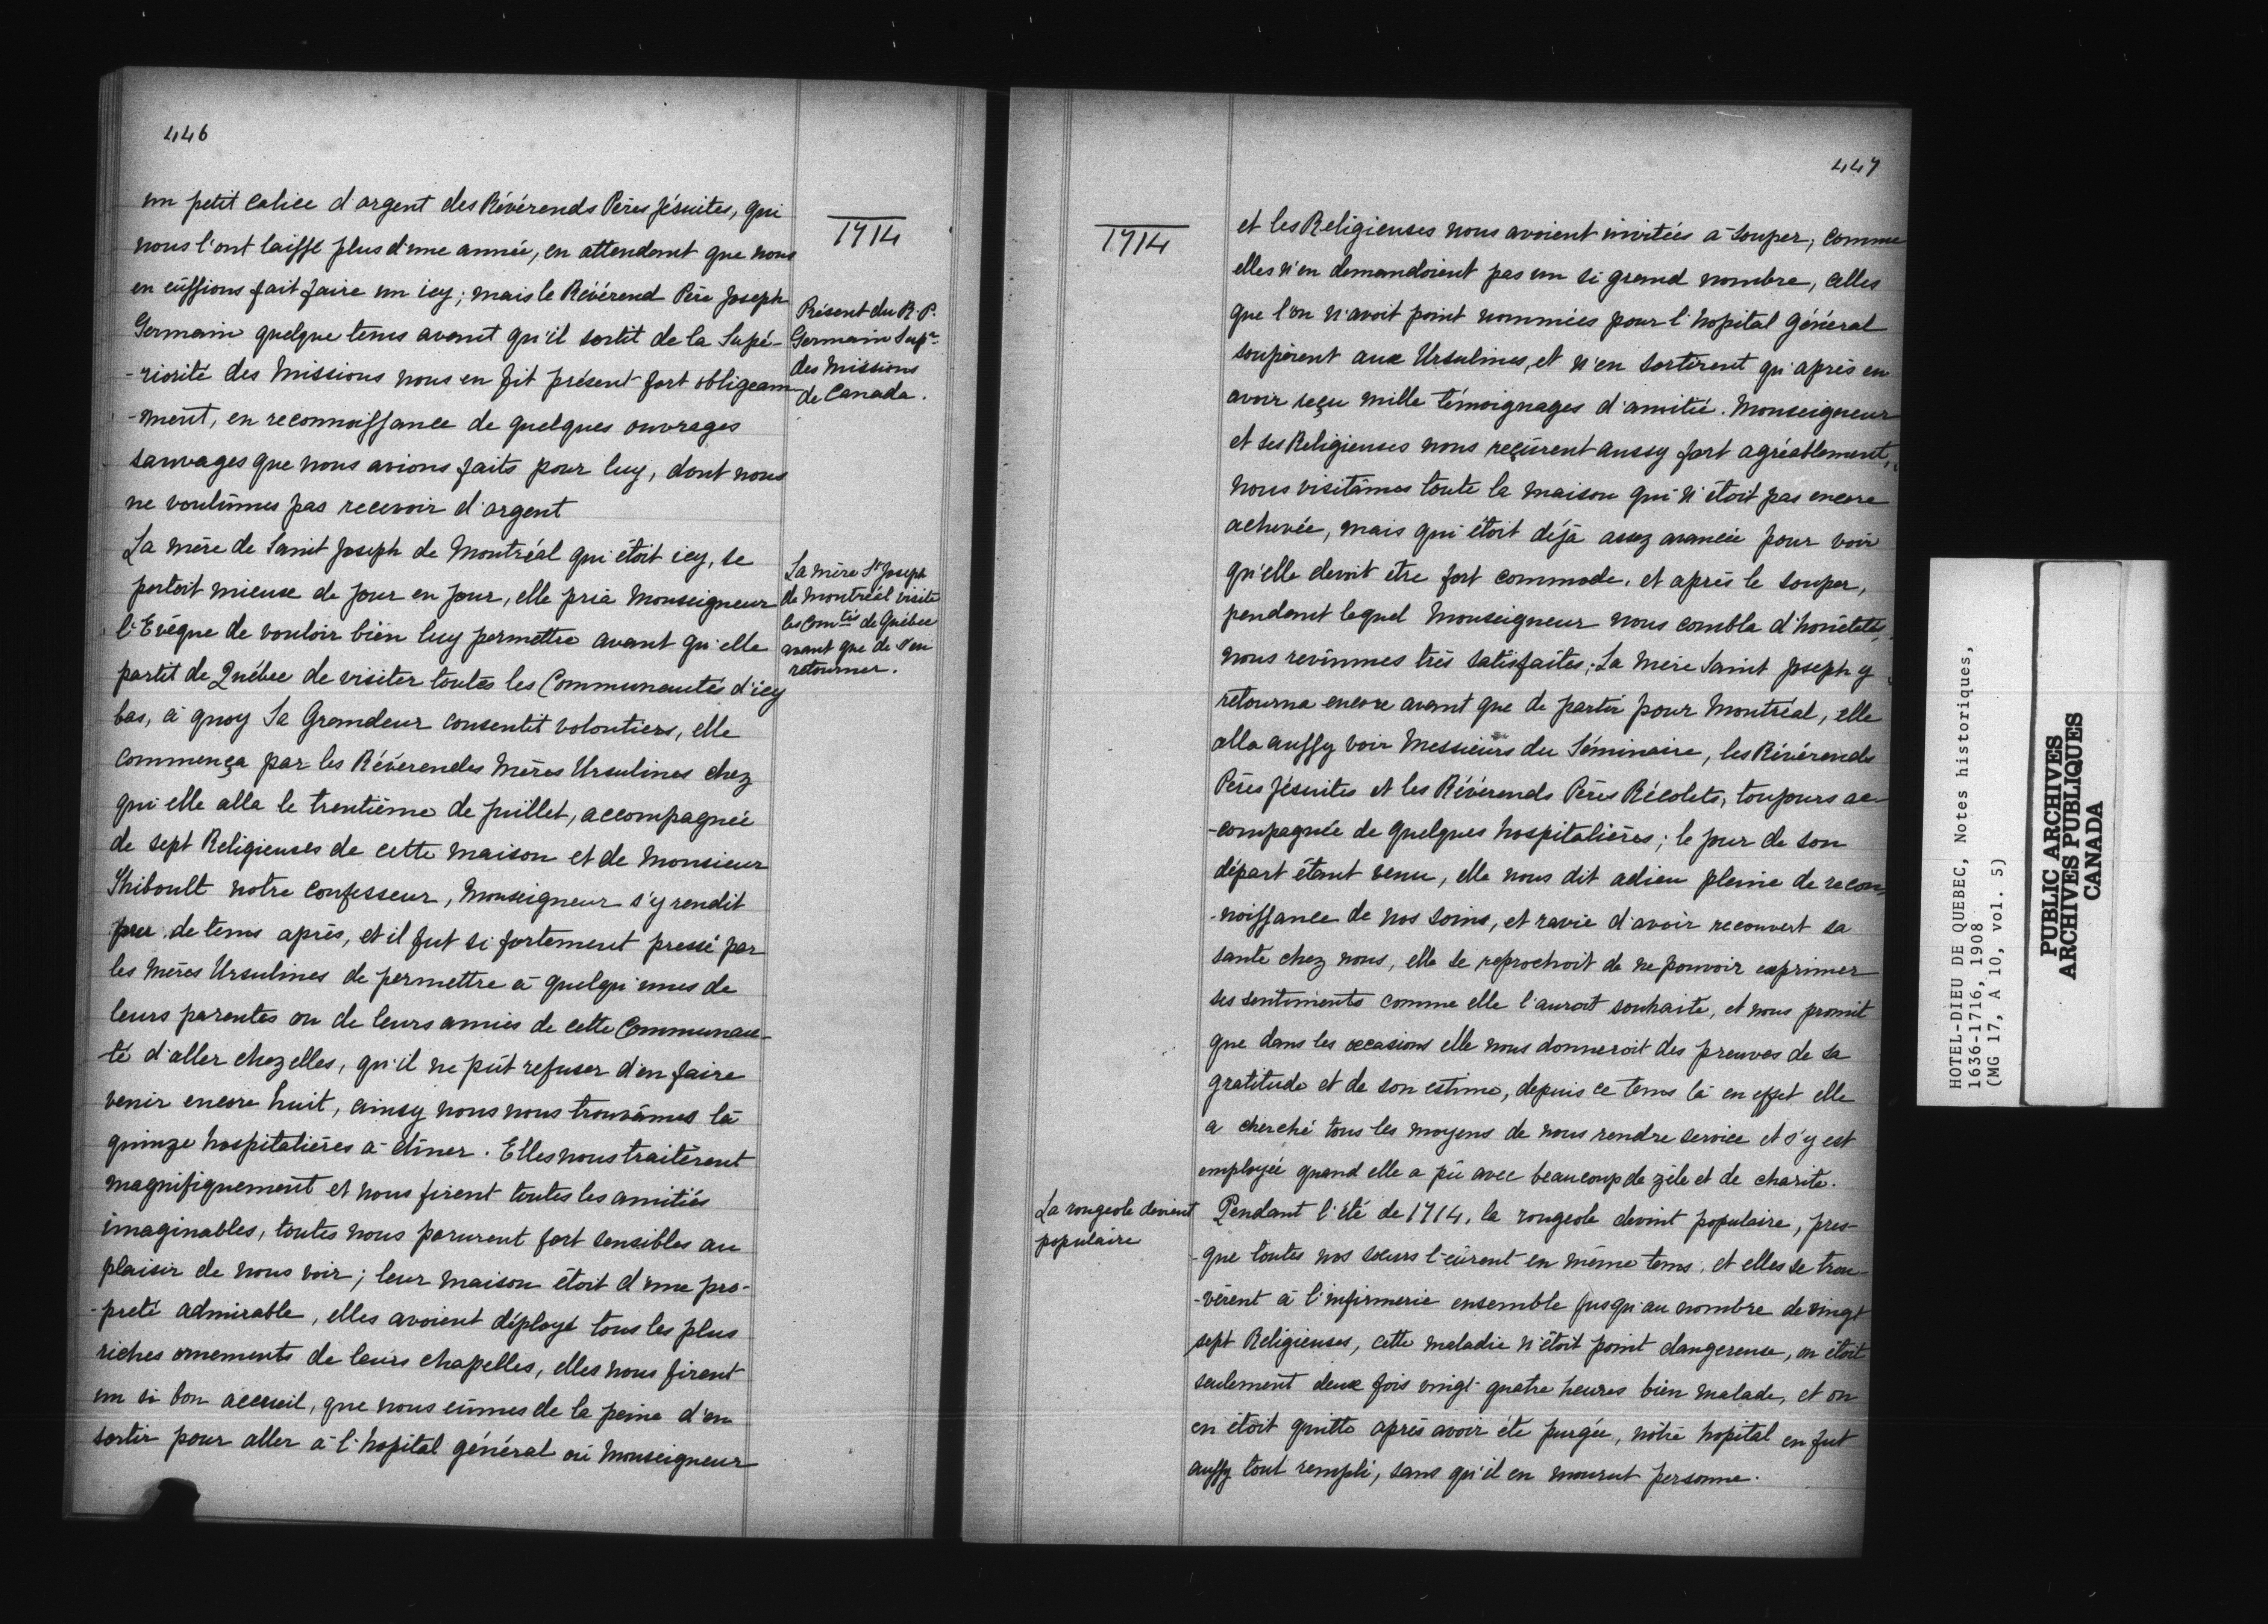 446
un petit calice d'argent des Révérends Pères Jésuites, qui
nous l'ont laissé plus d'une année, en attendant que nous
en eûssions fait faire un icy; mais le Révérend Père Joseph
Germain quelque tems avant qu'il sortit de la Supé-
-riorité des Missions nous en fit présent fort obligeam-
-ment, en reconnoissance de quelques ouvrages
sauvages que nous avions faits pour luy, dont nous
ne voulûmes pas recevoir d'argent
La mère de Saint Joseph de Montréal qui étoit icy, se
portoit mieux de jour en jour, elle pria Monseigneur
l'Evêque de vouloir bien luy permettre avant qu'elle
partit de Québec de visiter toutes les Communautés d'icy
bas, à quoy Sa Grandeur consentit volontiers, elle
commença par les Révérendes Mères Ursulines chez
qui elle alla le trentième de juillet, accompagnée
de sept Religieuses de cette maison et de Monsieur
Thiboult notre confesseur, Monseigneur s'y rendit
peu de tems après, et il fut si fortement pressé par
les mères Ursulines de permettre à quelqu'unes de
leurs parentes ou de leurs amies de cette Communau-
-té d'aller chez elles, qu'il ne pût refuser d'en faire
venir encore huit, ainsy nous nous trouvâmes là
quinze hospitalières à dîner. Elles nous traitèrent
magnifiquement et nous firent toutes les amitiés
imaginables, toutes nous parurent fort sensibles au
plaisir de nous voir; leur maison étoit d'une pro-
-preté admirable, elles avoient déployé tous les plus
riches ornements de leurs chapelles, elles nous firent
un si bon accueil, que nous eûmes de la peine d'en
sortir pour aller à l'hopital général où Monseigneur
1714
Présent du R.P.
Germain Supr
des Missions
de Canada.
La mère St Joseph
de Montréal visite
les Comtés de Québec
avant que de s'en
retourner.
447
1714
et les Religieuses nous avoient invitées à souper, comme
elles n'en demandoient pas un si grand nombre, celles
que l'on n'avoit point nommées pour l'hopital Général
soupèrent aux Ursulines, et n'en sortirent qu'après en
avoir reçu mille témoignages d'amitié. Monseigneur
et ses Religieuses nous reçûrent aussy fort agréablement,
nous visitâmes toute la maison qui n'étoit pas encore
achevée, mais qui étoit déjà assez avancée pour voir
qu'elle devoit être fort commode, et après le souper,
pendant lequel Monseigneur nous combla d'honêtetés,
nous revinmes très satisfaites; La mère Saint Joseph y
retourna encore avant que de partir pour Montréal, elle
alla aussy voir Messieurs du Séminaire, les Révérends
Pères Jésuites et les Révérends Pères Récolets, toujours ac-
-compagnée de quelques hospitalières; le jour de son
départ étant venu, elle nous dit adieu pleine de recon-
-noissance de nos soins, et ravie d'avoir recouvert sa
santé chez nous, elle se reprochoit de ne pouvoir exprimer
ses sentiments comme elle l'auroit souhaité, et nous promit
que dans les occasions elle nous donneroit des preuves de sa
gratitude et de son estime, depuis ce tems là en effet elle
a cherché tous les moyens de nous rendre service et s'y est
employée quand elle a pû avec beaucoup de zèle et de charité.
La rougeole devient
populaire
Pendant l'été de 1714, la rougeole devint populaire, pres-
-que toutes nos soeurs l'eûrent en même tems, et elles se trou-
-vèrent à l'infirmerie ensemble jusqu'au nombre de vingt
sept Religieuses, cette maladie n'étoit point dangereuse, on étoit
seulement deux fois vingt-quatre heures bien malade, et on
en étoit quitte après avoir été purgée, nôtre hopital en fut
aussy tout rempli, sans qu'il en mourut personne.
HOTEL-DIEU DE QUEBEC, Notes historiques,
1636-1716, 1908
(MG 17, A 10, vol. 5)
PUBLIC ARCHIVES
ARCHIVES PUBLIQUES
CANADA